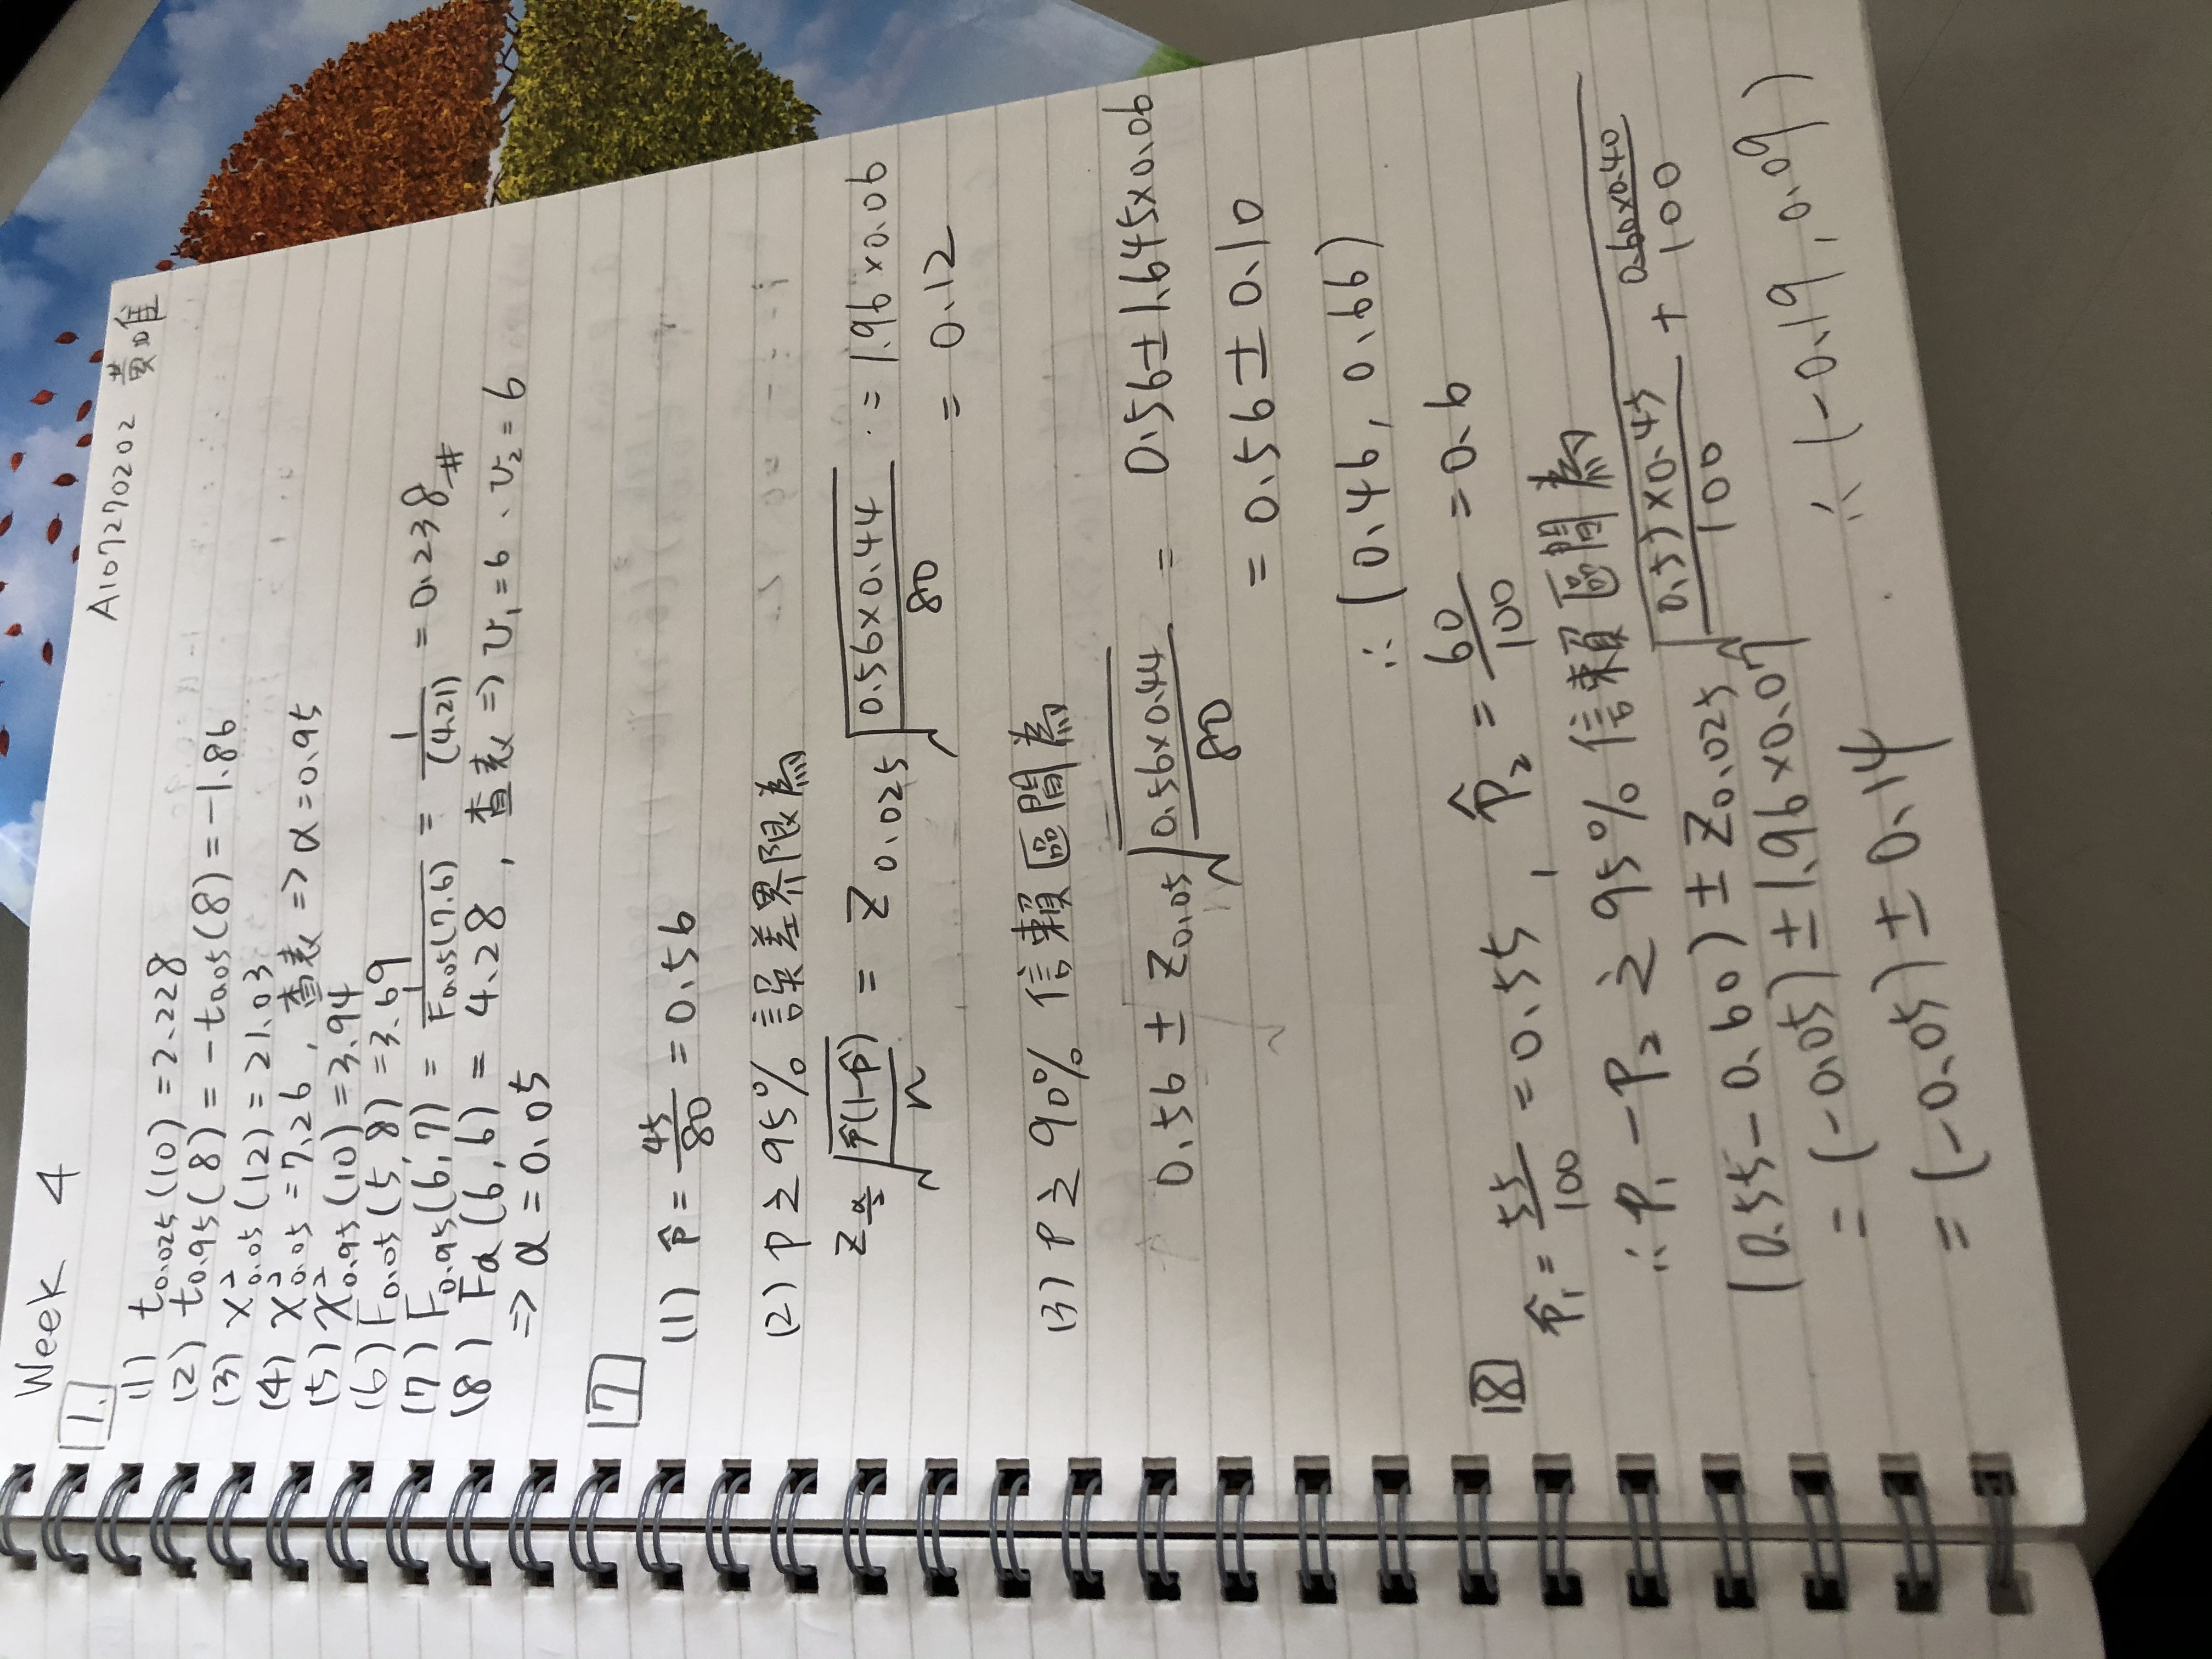 Week 4
A107270202 黃唯
1.
(1) t0.025(10) = 2.228
(2) t0.95(8) = -t0.05(8) = -1.86
(3) χ²0.05(12) = 21.03
(4) χ²0.05 = 7.26 , 查表 => α = 0.95
(5) χ²0.95(10) = 3.94
(6) F0.05(5,8) = 3.69
(7) F0.95(6,7) = 1/F0.05(7.6) = 1/(4.21) = 0.238 #
(8) Fα(6,6) = 4.28 , 查表 => υ1 = 6 、υ2 = 6
=> α = 0.05
7
(1) p̂ = 45/80 = 0.56
(2) P之95% 誤差界限為
Zα/2 √(p̂(1-p̂)/n) = Z0.025 √(0.56×0.44/80) = 1.96×0.06
= 0.12
(3) P之90% 信賴區間為
0.56 ± Z0.05 √(0.56×0.44/80) = 0.56±1.645×0.06
= 0.56 ± 0.10
∴ (0.46, 0.66)
8
p̂1 = 55/100 = 0.55 , p̂2 = 60/100 = 0.6
∴ P1 - P2 之95% 信賴區間為
(0.55-0.60) ± Z0.025 √(0.55×0.45/100 + 0.60×0.40/100)
= (-0.05) ± 1.96×0.07
= (-0.05) ± 0.14
∴ (-0.19, 0.09)